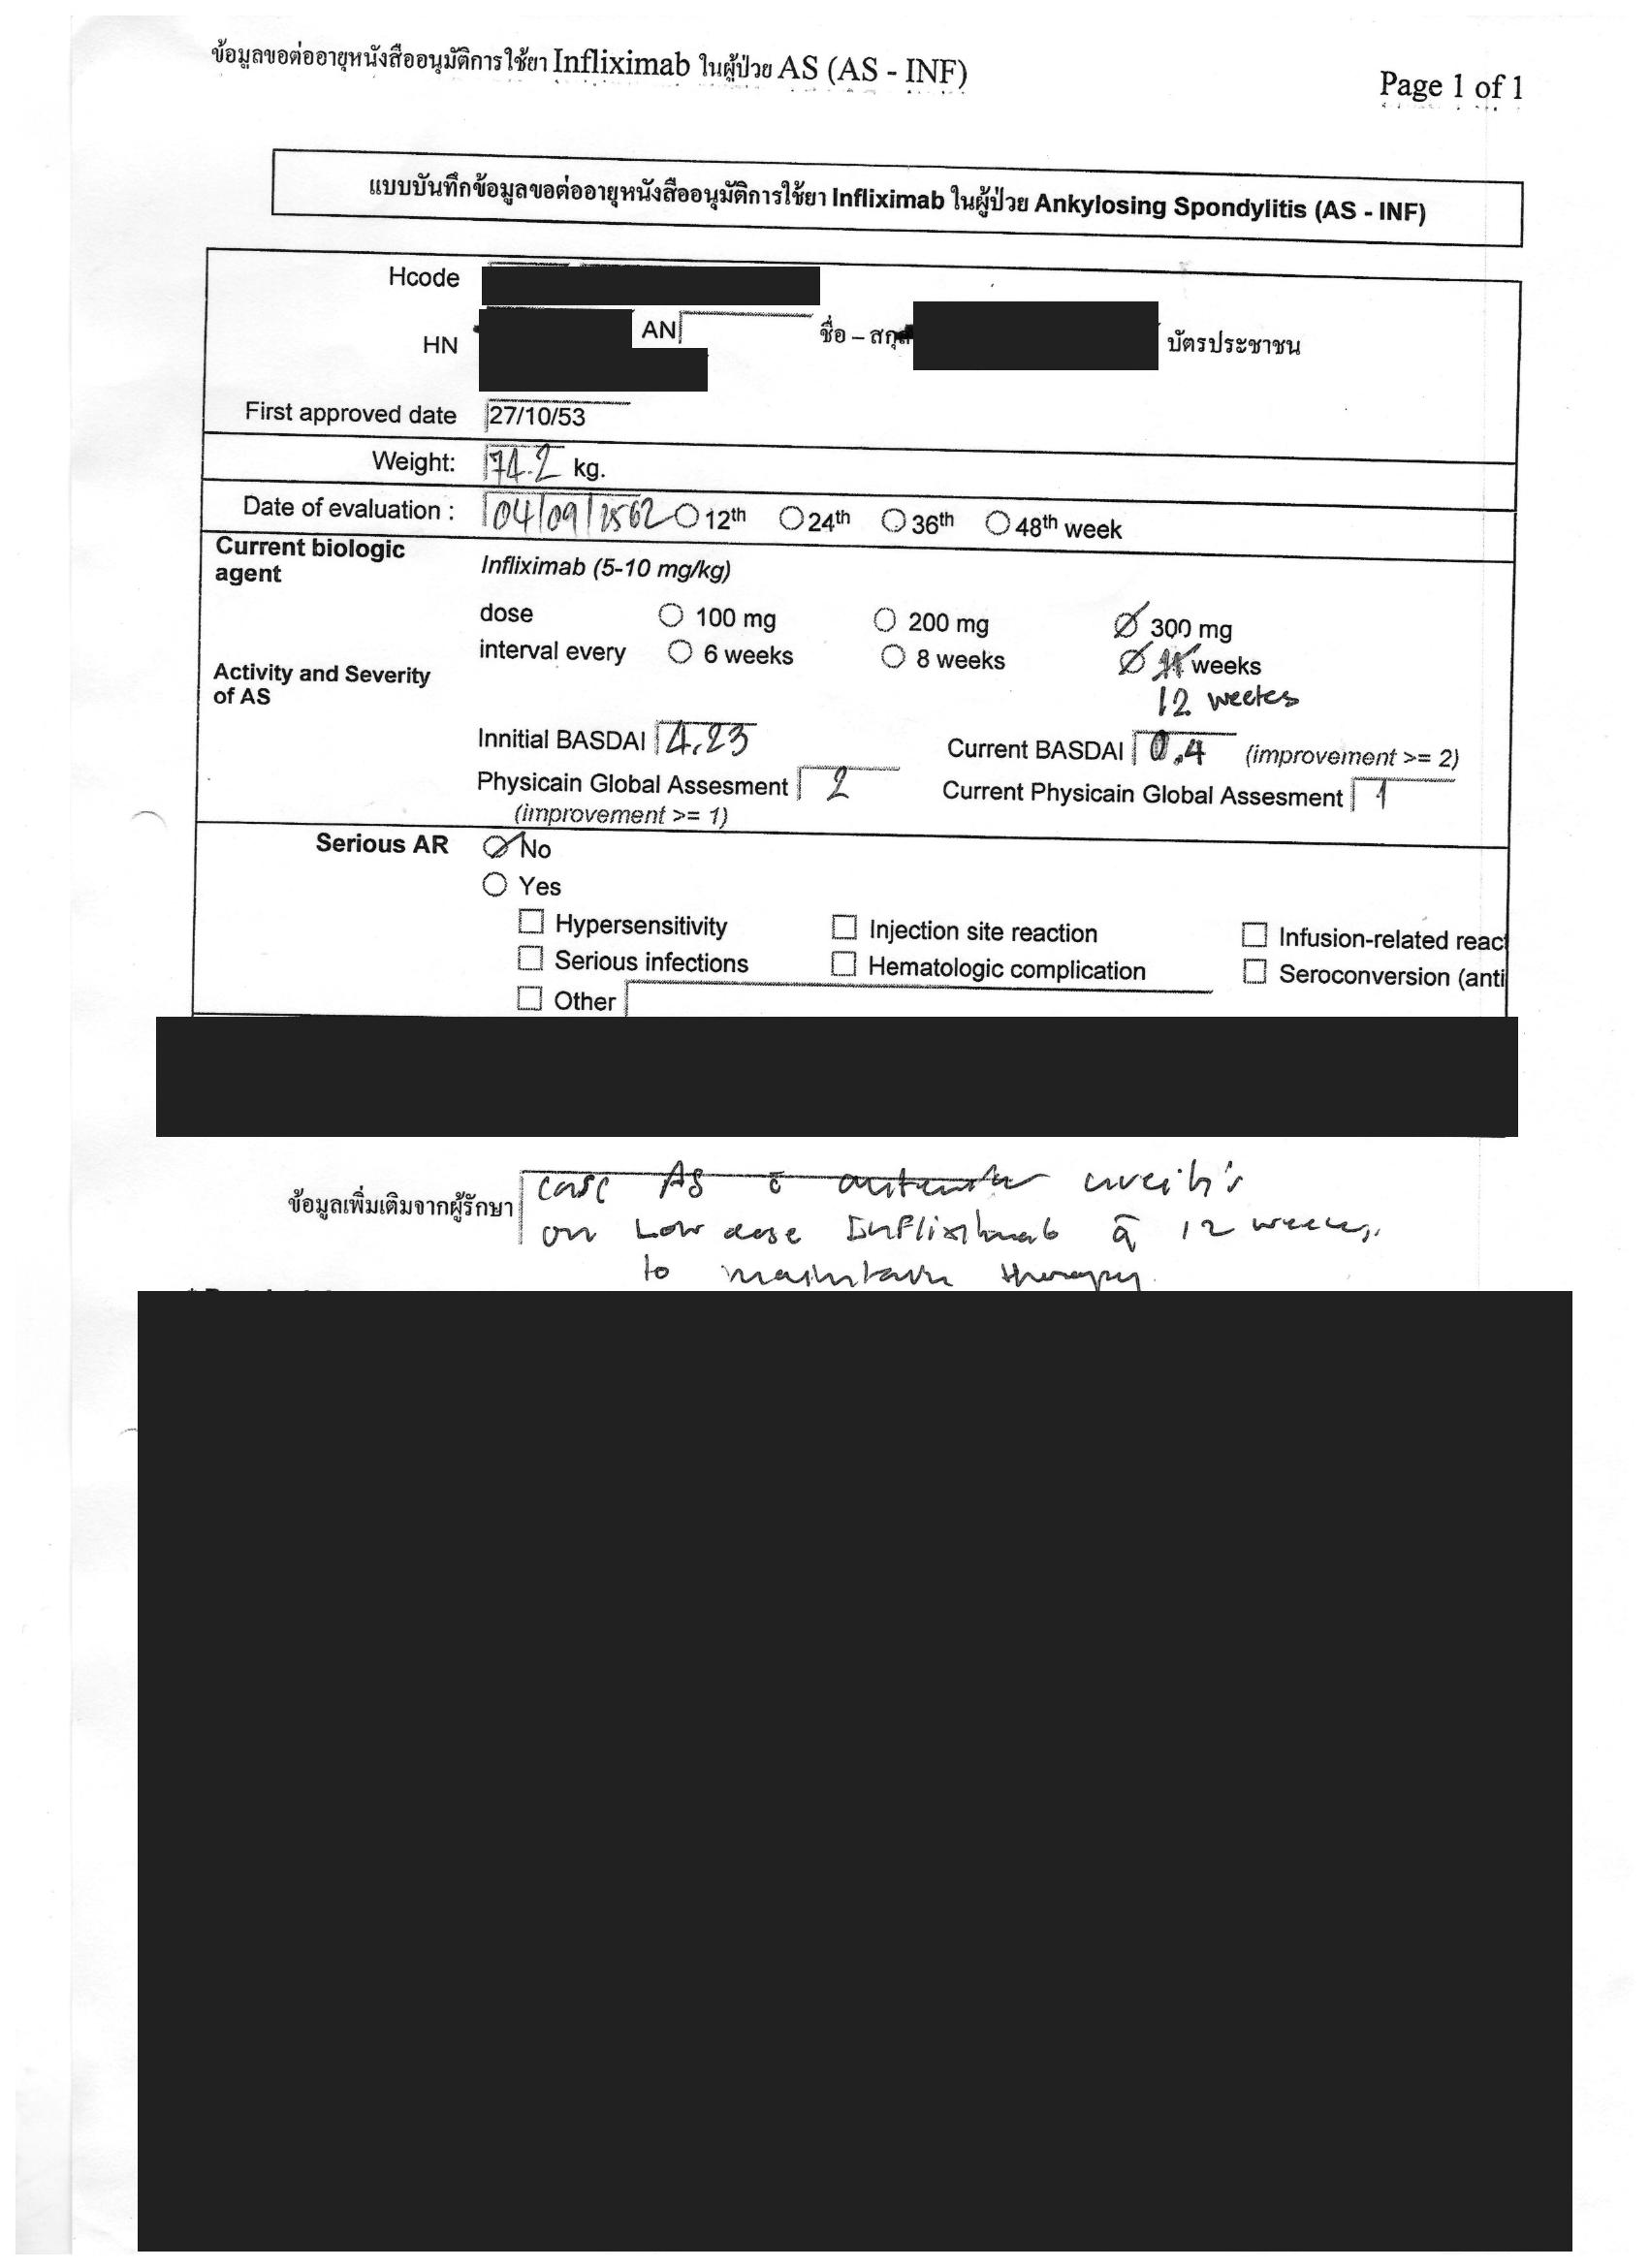 ข้อมูลขอต่ออายุหนังสืออนุมัติการใช้ยา Infliximab ในผู้ป่วย AS (AS - INF)
Page 1 of 1
แบบบันทึกข้อมูลขอต่ออายุหนังสืออนุมัติการใช้ยา Infliximab ในผู้ป่วย Ankylosing Spondylitis (AS - INF)
Hcode
HN AN ชื่อ – สกุ บัตรประชาชน
First approved date 27/10/53
Weight: 74.2 kg.
Date of evaluation : 04/09/2562 12th 24th 36th 48th week
Current biologic agent Infliximab (5-10 mg/kg)
dose 100 mg 200 mg 300 mg
interval every 6 weeks 8 weeks weeks
12 weeks
Activity and Severity of AS
Innitial BASDAI 4.23 Current BASDAI 0.4 (improvement >= 2)
Physicain Global Assesment 2 Current Physicain Global Assesment 1
(improvement >= 1)
Serious AR No
Yes
Hypersensitivity Injection site reaction Infusion-related reac
Serious infections Hematologic complication Seroconversion (anti
Other
ข้อมูลเพิ่มเติมจากผู้รักษา case AS c̄ uveitis
on Low dose Infliximab q 12 weeks
to maintain therapy